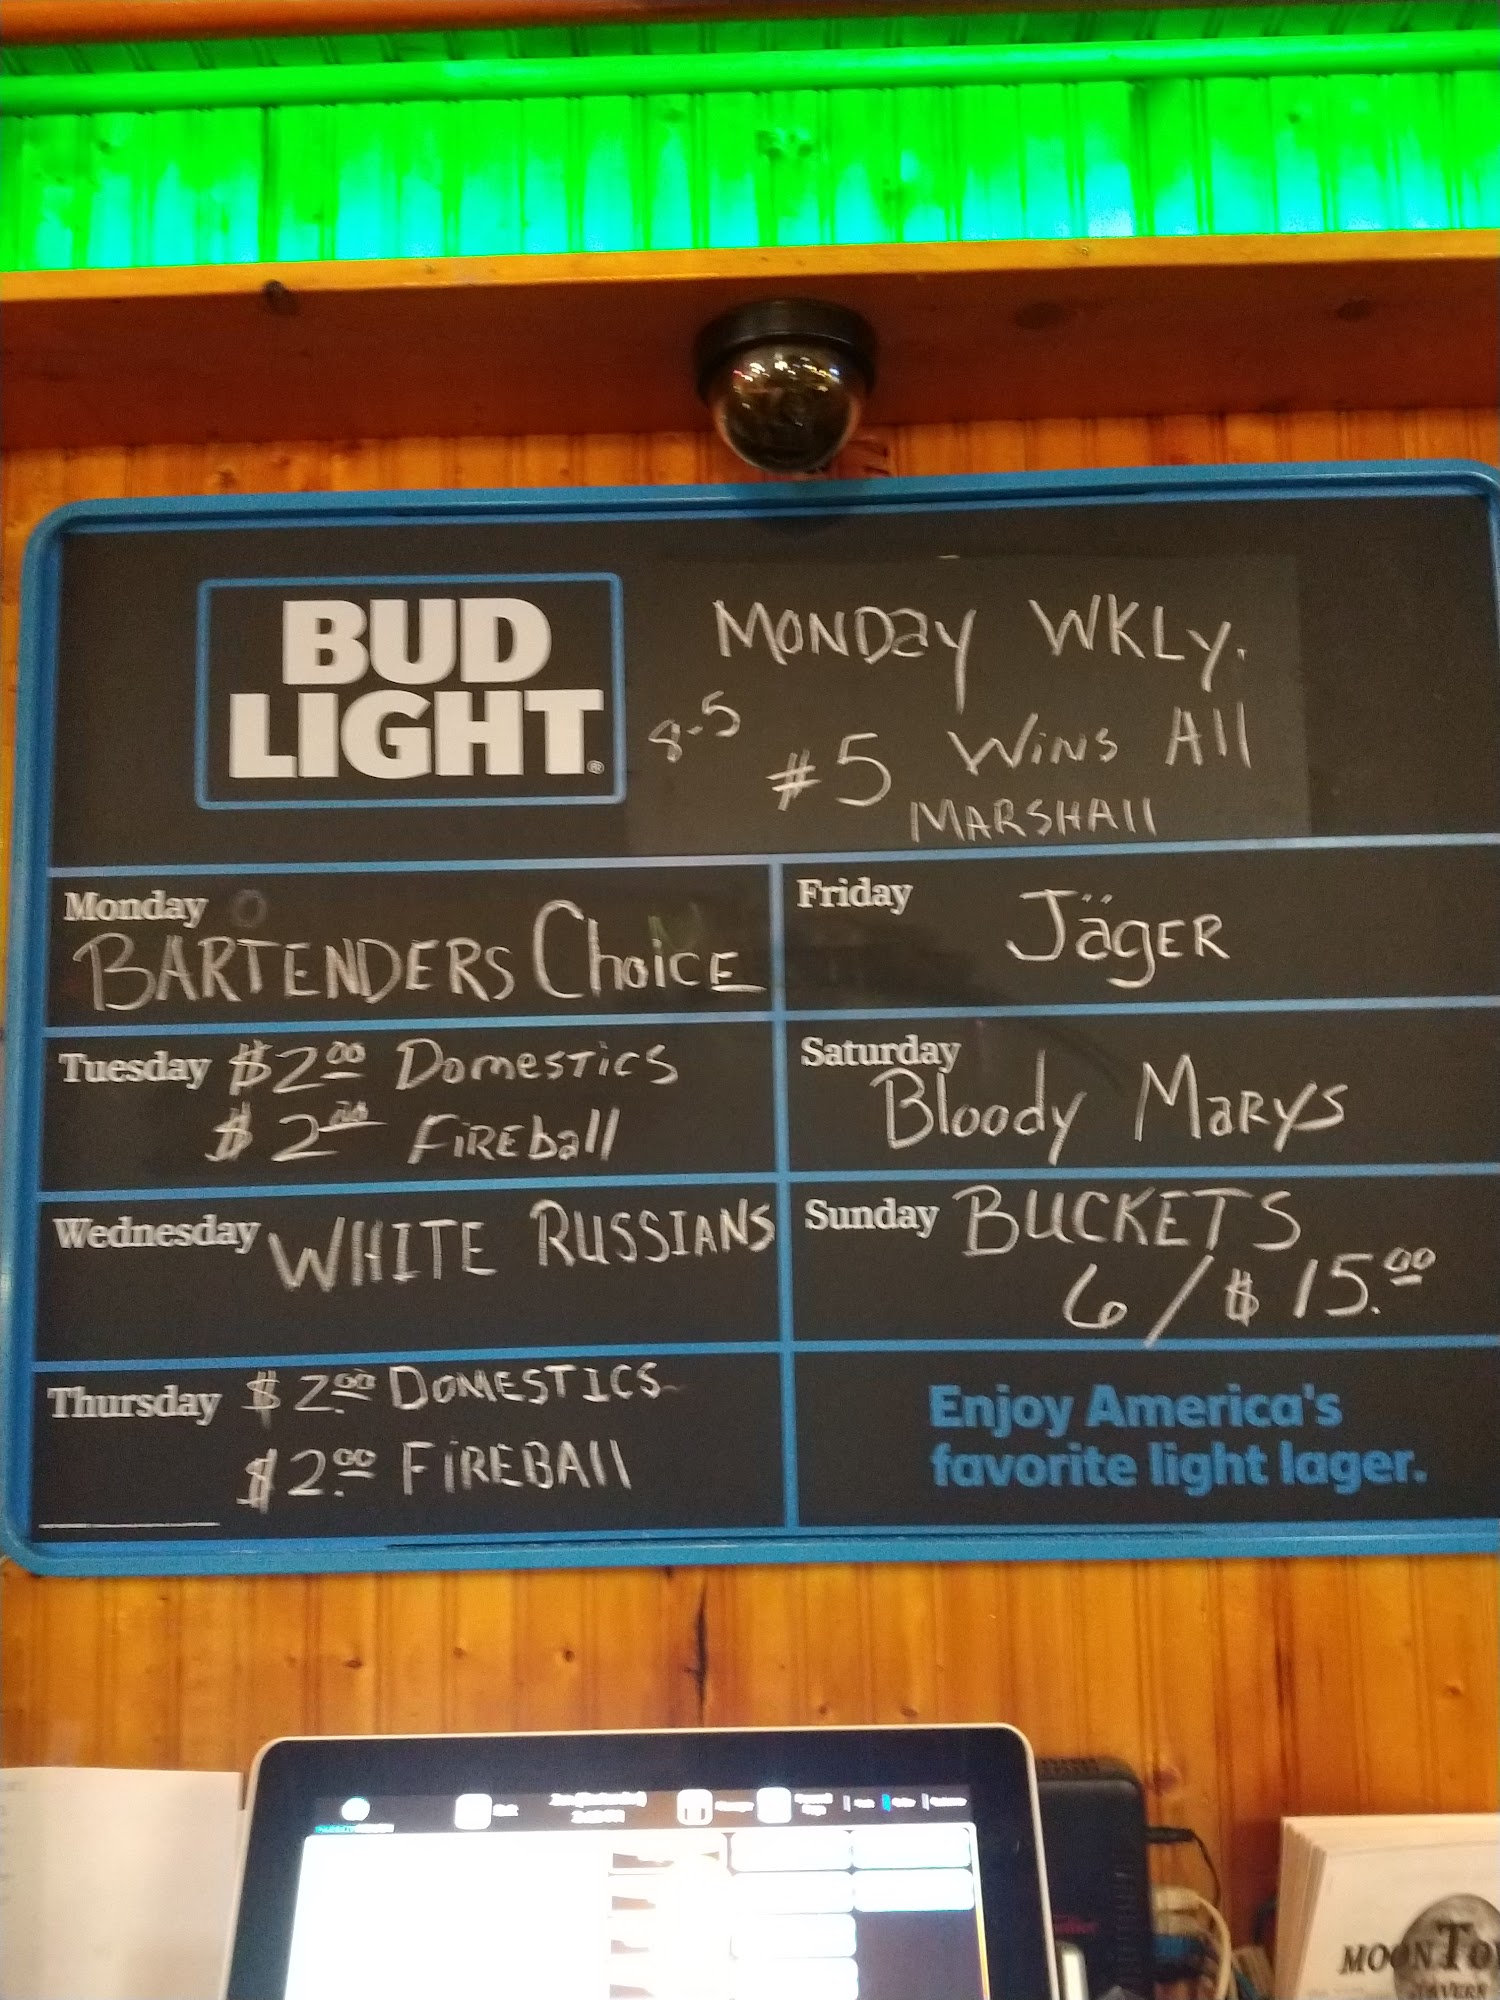 BUD
LIGHT®
MONDAY WKLY.
8-5
#5 WINS All
MARSHAll
Monday
BARTENDERS ChoiCE
Tuesday $2.00 DomesTics
$2.00 FiREball
Wednesday WHITE RUSSIANS
Thursday $2.00 DOMESTICS
$2.00 FiREBAll
Friday
JägER
Saturday
Bloody MaRys
Sunday BUCKETS
6/$15.00
Enjoy America's
favorite light lager.